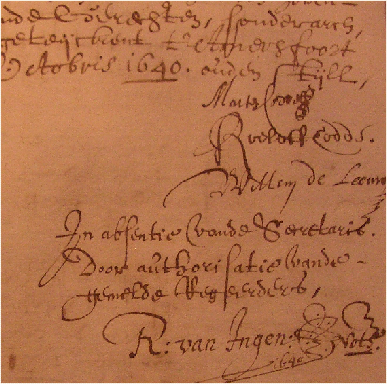 ende Gerechten, sonder arch,
geteijckent t'Amersfoort
Octobris 1640. ouden Stijll,
Roeloff Codds.
Willem de Leeuw
In absentie vande Secretaris.
Door authorisatie vande
gemelde Regeerders,
R. van Ingen. Nots.
1640